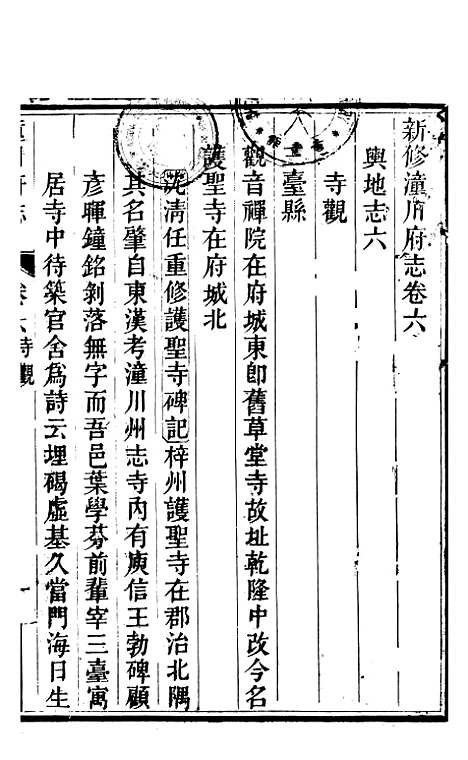 新修潼川府志卷六
輿地志六
寺觀
臺縣
觀音禪院在府城東卽舊草堂寺故址乾隆中改今名
護聖寺在府城北
沈清任重修護聖寺碑記梓州護聖寺在郡治北隅
其名肇自東漢考潼川州志寺內有庾信王勃碑顧
彥暉鐘銘剝落無字而吾邑葉學芬前輩宰三臺寓
居寺中待築官舍爲詩云埋碣虛基久當門海日生
府志 卷六 寺觀 一